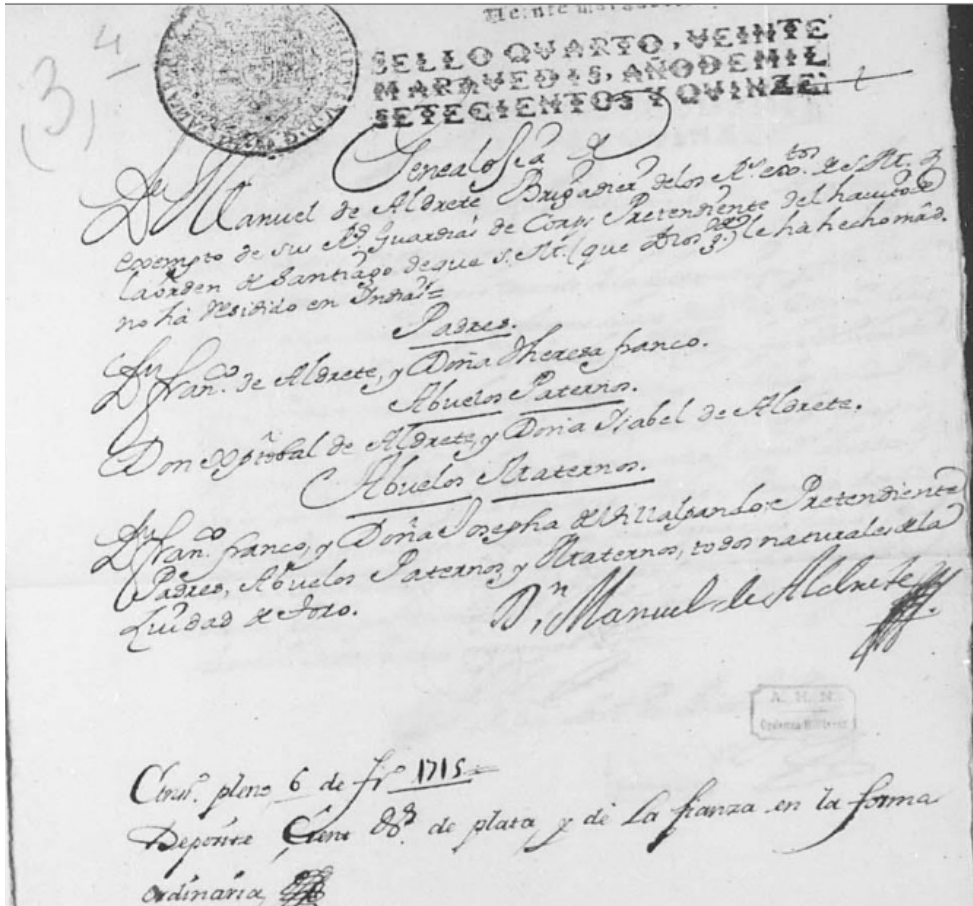 4
(3)
Veinte maravedis
SELLO QVARTO, VEINTE
MARAVEDIS, AÑO DE MIL
SETECIENTOS Y QVINZE
Genealogia de
Dn Manuel de Aldrete Brigadier delos Rs. extos. de S. Mt. y
exempto de sus Rs. Guardias de Corps Pretendiente del hauito de
la orden de Santiago de que S. Mt. (que Dios gde.) le ha hecho mrd.
no ha residido en Indias=
Padres.
Dn Franco. de Aldrete, y Doña Theresa franco.
Abuelos Paternos.
Don Xptobal de Aldrete, y Doña Isabel de Aldrete.
Abuelos Maternos.
Dn Franco. franco, y Doña Josepha de Villalpando: Pretendiente
Padres, Abuelos Paternos, y Maternos, todos naturales de la
Ciudad de Toro.
Dn. Manuel de Aldrete
A. H. N.
Ordenes Militares
pleno 6 de fro 1715
Deposite Cient ds. de plata y de la fianza en la forma
ordinaria